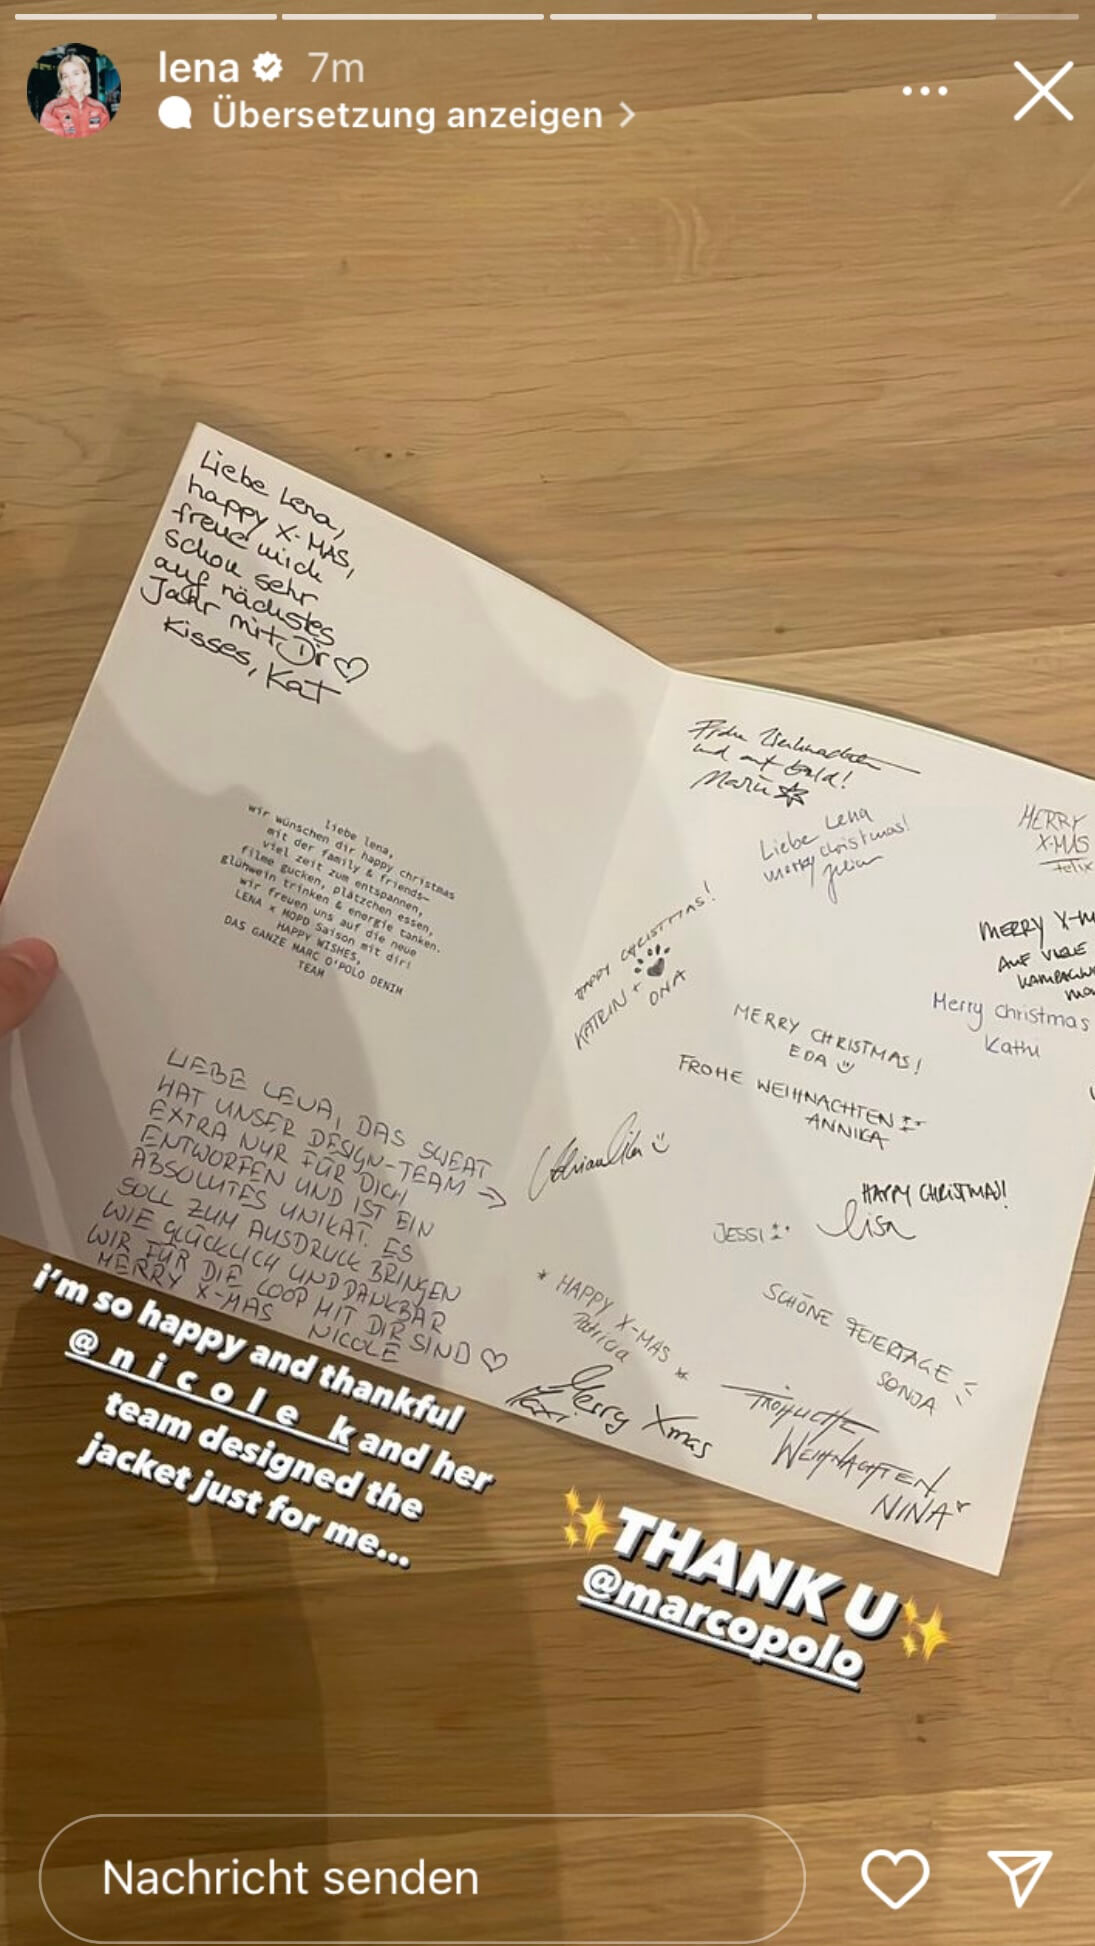 lena 7m
Übersetzung anzeigen
Liebe Lena,
happy X-MAS,
freue mich
schon sehr
auf nächstes
Jahr mit Dir ♡
Kisses, Kat
liebe lena,
wir wünschen dir happy christmas
mit der family & friends—
viel zeit zum entspannen,
filme gucken, plätzchen essen,
glühwein trinken & energie tanken.
wir freuen uns auf die neue
LENA x MOPD Saison mit dir!
HAPPY WISHES,
DAS GANZE MARC O'POLO DENIM
TEAM
LIEBE LENA, DAS SWEAT
HAT UNSER DESIGN-TEAM →
EXTRA NUR FÜR DICH
ENTWORFEN UND IST EIN
ABSOLUTES UNIKAT. ES
SOLL ZUM AUSDRUCK BRINGEN
WIE GLÜCKLICH UND DANKBAR
WIR FÜR DIE COOP MIT DIR SIND ♡
MERRY X-MAS NICOLE
Frohe Weihnachten
und auf bald!
Marie
Liebe Lena
merry christmas!
Julian
MERRY
X-MAS
felix
HAPPY CHRISTMAS!
KATRIN +
ONA
MERRY X-M
AUF VIELE
KAMPAGN
Merry christmas
Kathi
MERRY CHRISTMAS!
EDA
FROHE WEIHNACHTEN
ANNIKA
HAPPY CHRISTMAS!
Lisa
JESSI
* HAPPY X-MAS *
Patricia
SCHÖNE FEIERTAGE
SONJA
Merry Xmas
FRÖHLICHE
WEIHNACHTEN
NINA
i'm so happy and thankful
@n_i_c_o_l_e__k and her
team designed the
jacket just for me...
✨THANK U✨
@marcopolo
Nachricht senden